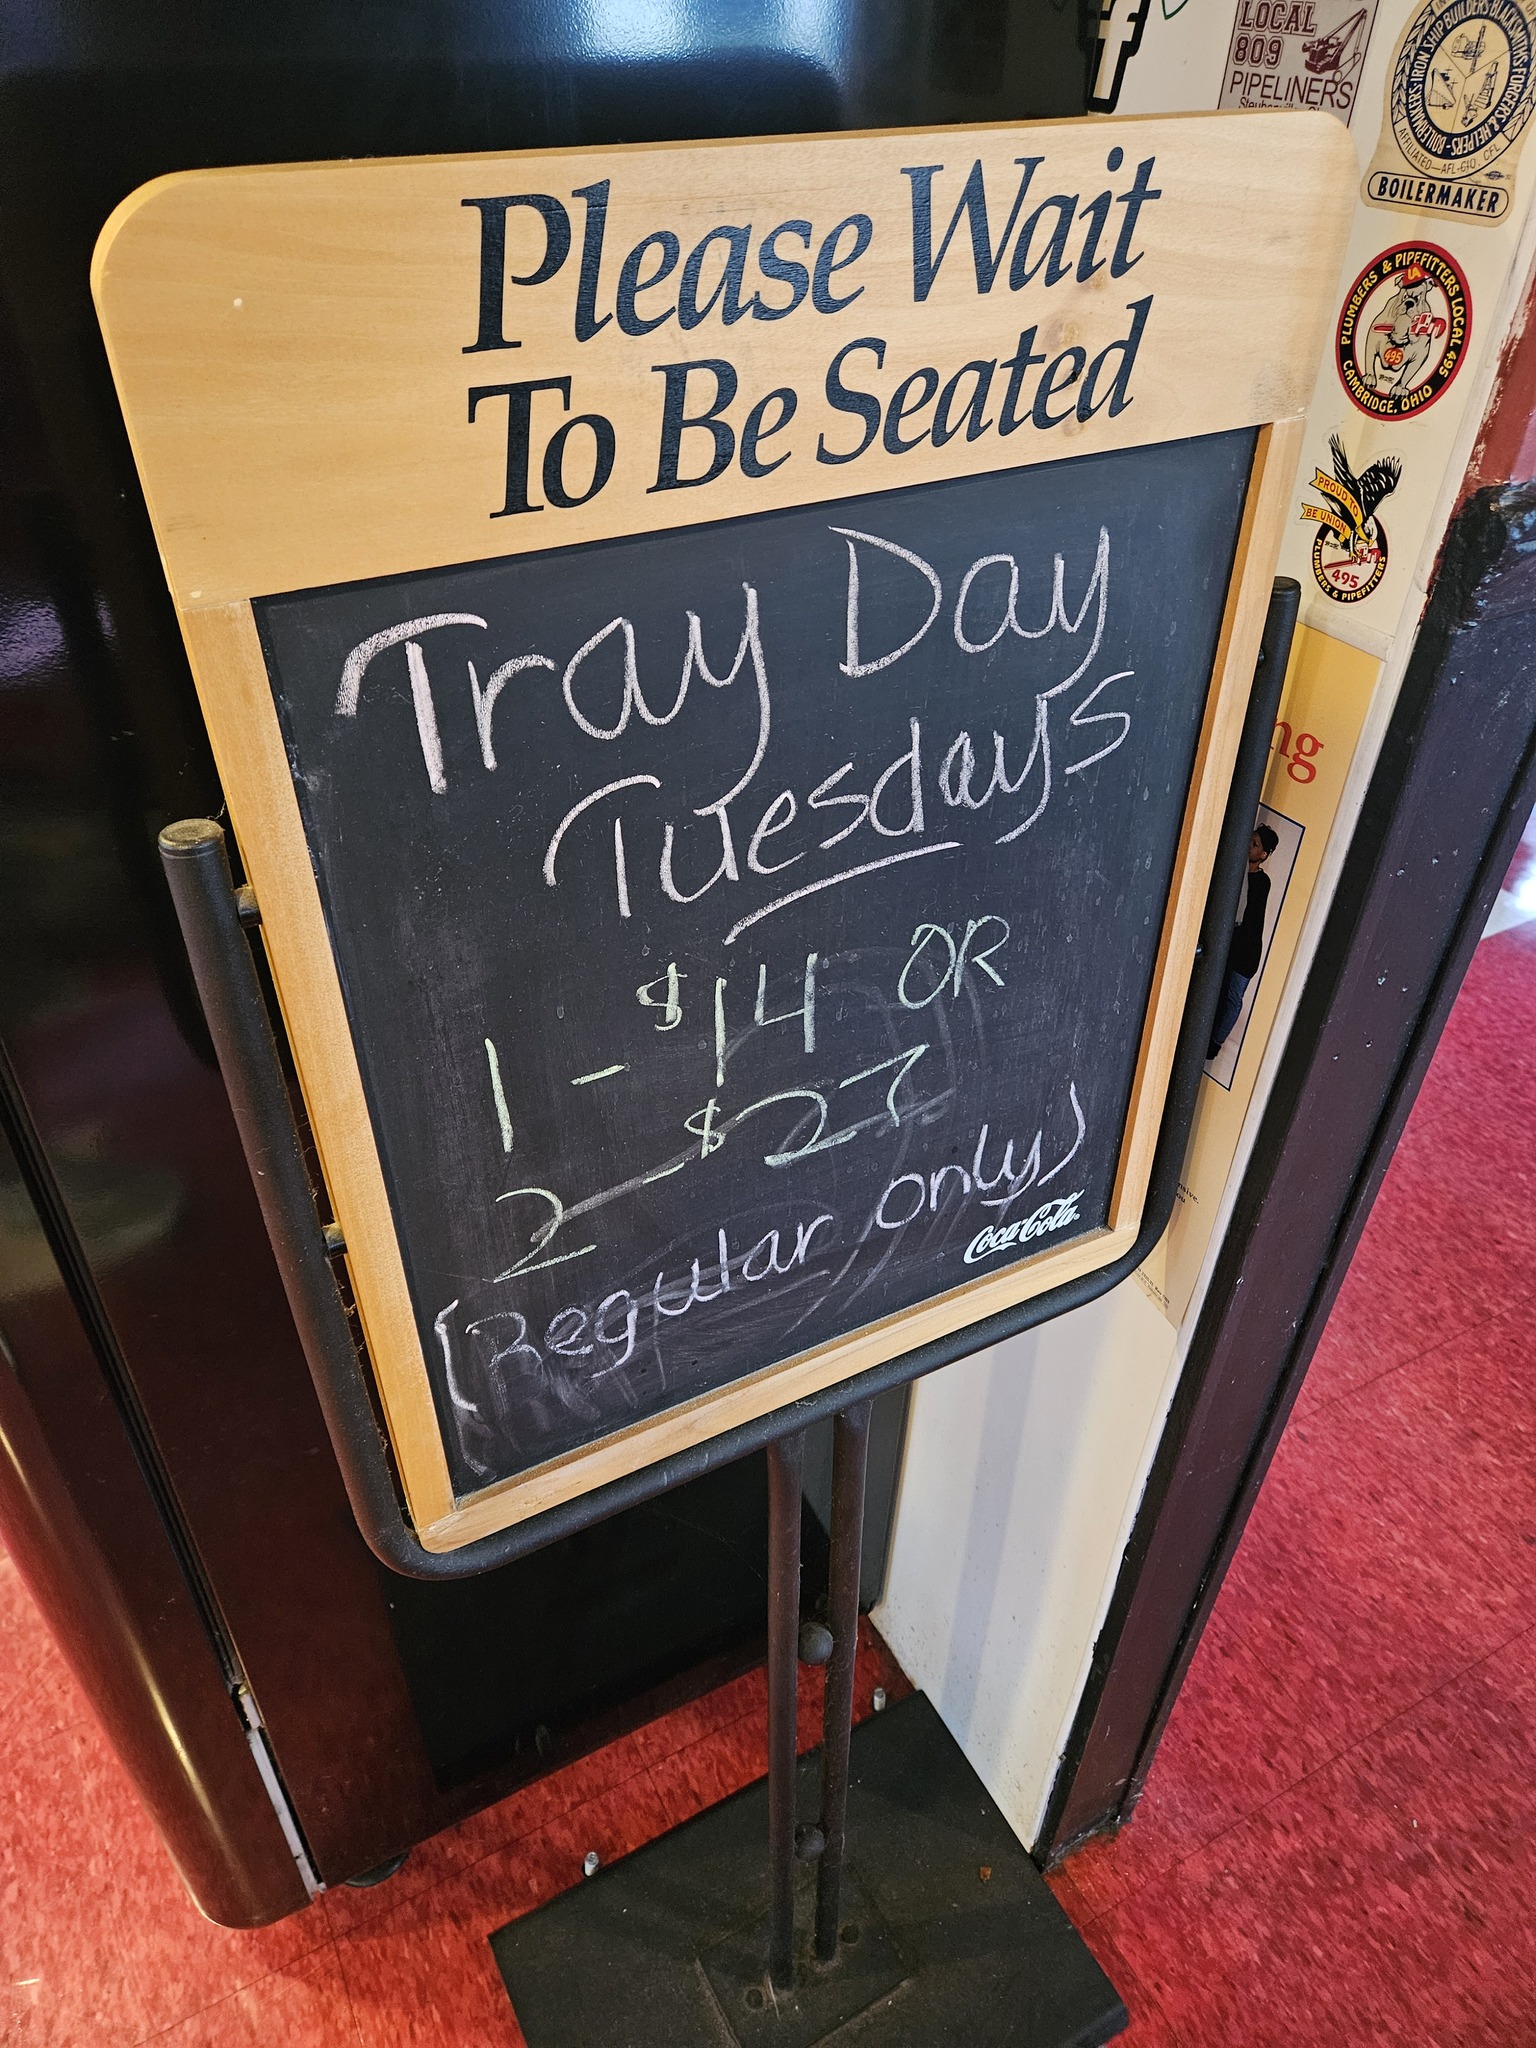 Please Wait
To Be Seated
Tray Day
Tuesdays
1 - $14 OR
2 - $27
(Regular only)
Coca-Cola
LOCAL
809
PIPELINERS
IRON SHIP BUILDERS BLACKSMITHS FORGERS & HELPERS - BOILERMAKERS
AFFILIATED—AFL-CIO, CFL
BOILERMAKER
PLUMBERS & PIPEFITTERS LOCAL 495
UA
495
CAMBRIDGE, OHIO
PROUD TO
BE UNION
495
PLUMBERS & PIPEFITTERS
ng